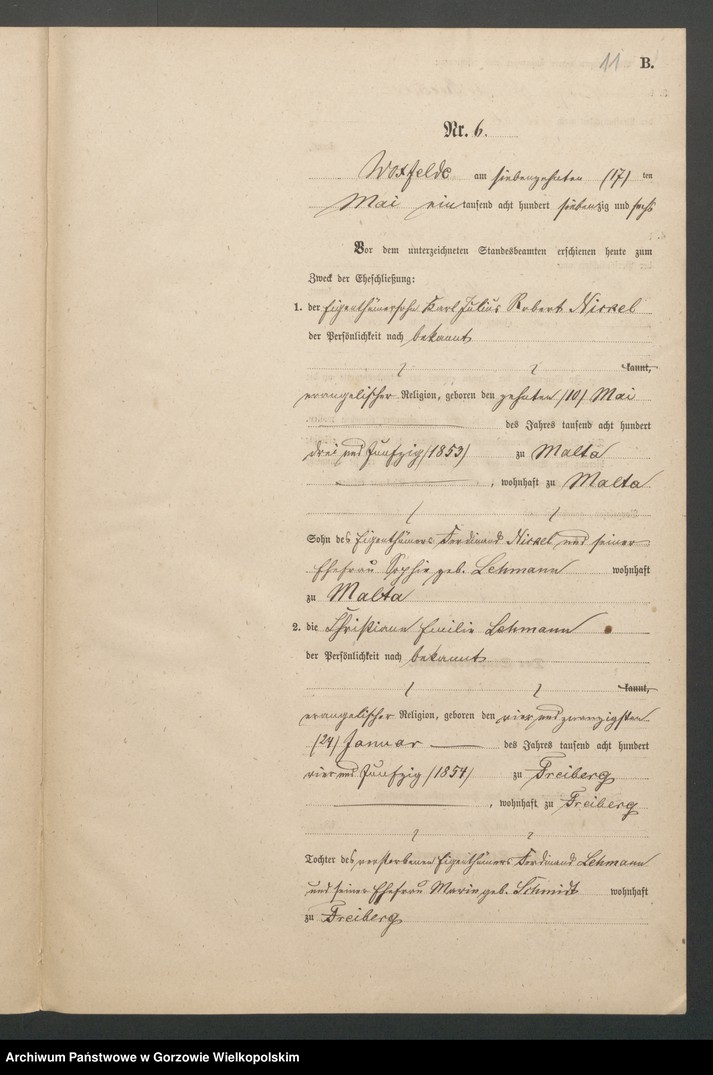 11 B.
Nr. 6.
Woxfelde am siebenzehnten (17) ten
Mai ein tausend acht hundert siebenzig und sechs
Vor dem unterzeichneten Standesbeamten erschienen heute zum
Zweck der Eheschließung:
1. der Eigenthümersohn Karl Julius Robert Nickel
der Persönlichkeit nach bekannt
kannt,
evangelischer Religion, geboren den zehnten (10) Mai
des Jahres tausend acht hundert
drei und fünfzig (1853) zu Malta
, wohnhaft zu Malta
Sohn des Eigenthümers Ferdinand Nickel und seiner
Ehefrau Sophie geb. Lehmann wohnhaft
zu Malta
2. die Christiane Emilie Lehmann
der Persönlichkeit nach bekannt
kannt,
evangelischer Religion, geboren den vier und zwanzigsten
(24) Januar des Jahres tausend acht hundert
vier und fünfzig (1854) zu Freiberg
, wohnhaft zu Freiberg
Tochter des verstorbenen Eigenthümers Ferdinand Lehmann
und seiner Ehefrau Marie geb. Schmidt wohnhaft
zu Freiberg
Archiwum Państwowe w Gorzowie Wielkopolskim